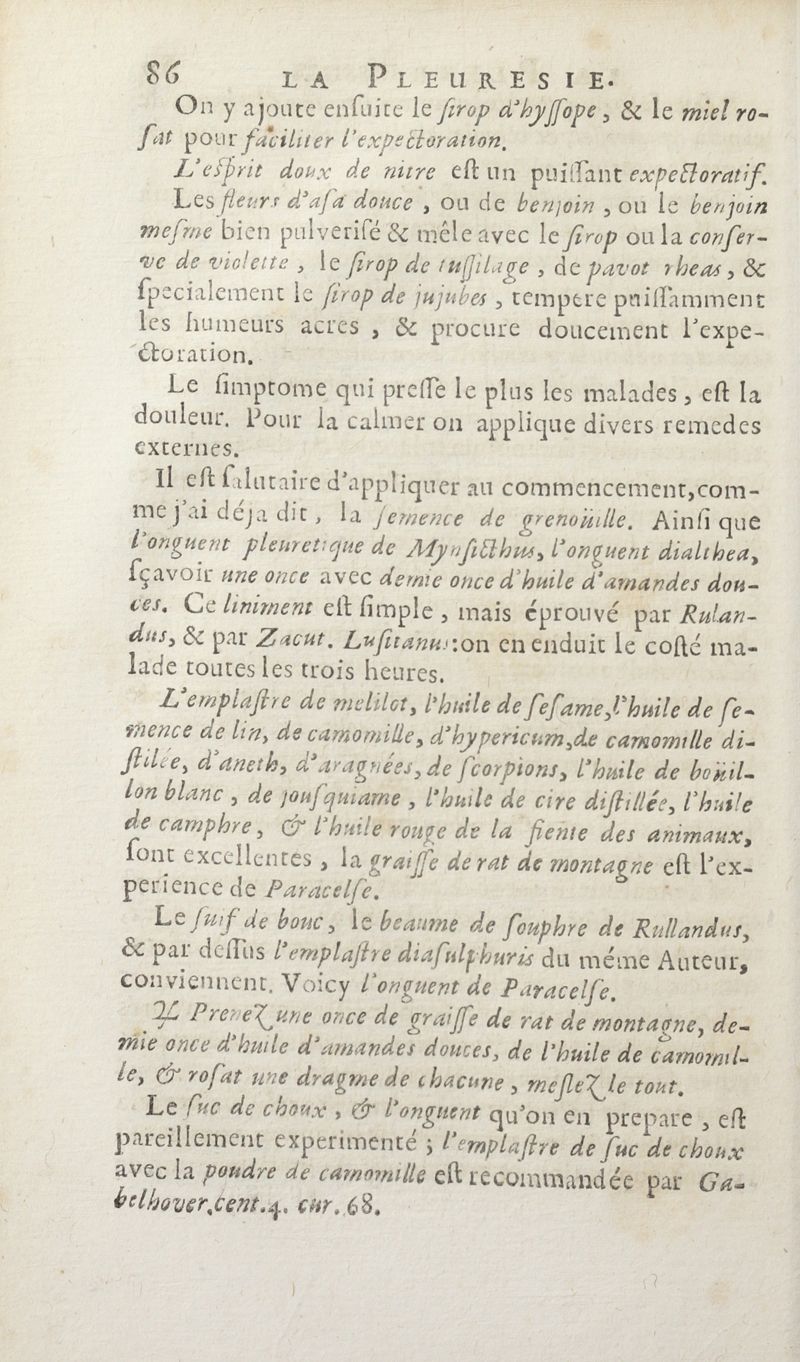 86 LA PLEURESIE.
On y ajoute enſuite le ſirop d'hyſſope, & le miel ro-
ſat pour faciliter l'expectoration.
L'eſprit doux de nitre eſt un puiſſant expectoratif.
Les fleurs d'aſa douce, ou de benjoin, ou le benjoin
meſme bien pulveriſé & mêle avec le ſirop ou la conſer-
ve de violette, le ſirop de tuſſilage, de pavot rheas, &
ſpecialement le ſirop de jujubes, tempere puiſſamment
les humeurs acres, & procure doucement l'expe-
ctoration.
Le ſimptome qui preſſe le plus les malades, eſt la
douleur. Pour la calmer on applique divers remedes
externes.
Il eſt ſalutaire d'appliquer au commencement, com-
me j'ai déja dit, la ſemence de grenoüille. Ainſi que
l'onguent pleuretique de Mynſicthus, l'onguent dialthea,
ſçavoir une once avec demie once d'huile d'amandes dou-
ces. Ce liniment eſt ſimple, mais éprouvé par Rulan-
dus, & par Zacut. Luſitanus: on en enduit le coſté ma-
lade toutes les trois heures.
L'emplaſtre de melilot, l'huile de ſeſame, l'huile de ſe-
mence de lin, de camomille, d'hypericum, de camomille di-
ſtilée, d'aneth, d'aragnées, de ſcorpions, l'huile de boüil-
lon blanc, de jouſquiame, l'huile de cire diſtillée, l'huile
de camphre, & l'huile rouge de la fiente des animaux,
ſont excellentes, la graiſſe de rat de montagne eſt l'ex-
perience de Paracelſe.
Le ſuif de bouc, le beaume de ſouphre de Rullandus,
& par deſſus l'emplaſtre diaſulphuris du méme Auteur,
conviennent. Voicy l'onguent de Paracelſe.
♃ Prenez une once de graiſſe de rat de montagne, de-
mie once d'huile d'amandes douces, de l'huile de camomil-
le, & roſat une dragme de chacune, meſlez le tout.
Le ſuc de choux, & l'onguent qu'on en prepare, eſt
pareillement experimenté; l'emplaſtre de ſuc de choux
avec la poudre de camomille eſt recommandée par Ga-
belhover, cent. 4. cur. 68.